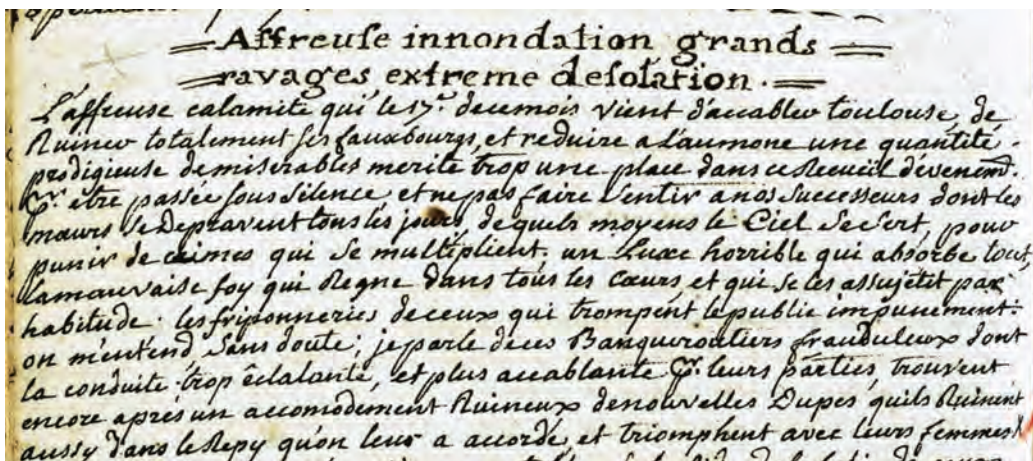 Affreuse innondation grands
ravages extreme desolation.
L'affreuse calamité qui le 17.e de ce mois vient d'accabler toulouse, de
Ruiner totalement ses fauxbourgs, et reduire a L'aumone une quantité
prodigieuse de miserables merite trop une place dans ce Recueïl d'évenemt.
pr. etre passée sous silence et ne pas faire sentir a nos successeurs dont les
mœurs se Depravent tous les jours, de quels moyens le Ciel se sert, pour
punir de crimes qui se multiplient. un Luxe horrible qui absorbe tout,
la mauvaise foy qui Regne dans tous les cœurs et qui se les assujetit par
habitude. les friponneries de ceux qui trompent le public impunement.
on m'entend sans doute; je parle de ces Banqueroutiers frauduleux dont
la conduite trop éclatante, et plus accablante pr. leurs parties, trouvent
encore aprés un accomodement Ruineux de nouvelles Dupes qu'ils Ruinent
aussy dans le Repy qu'on leur a accordé, et triomphent avec leurs femmes